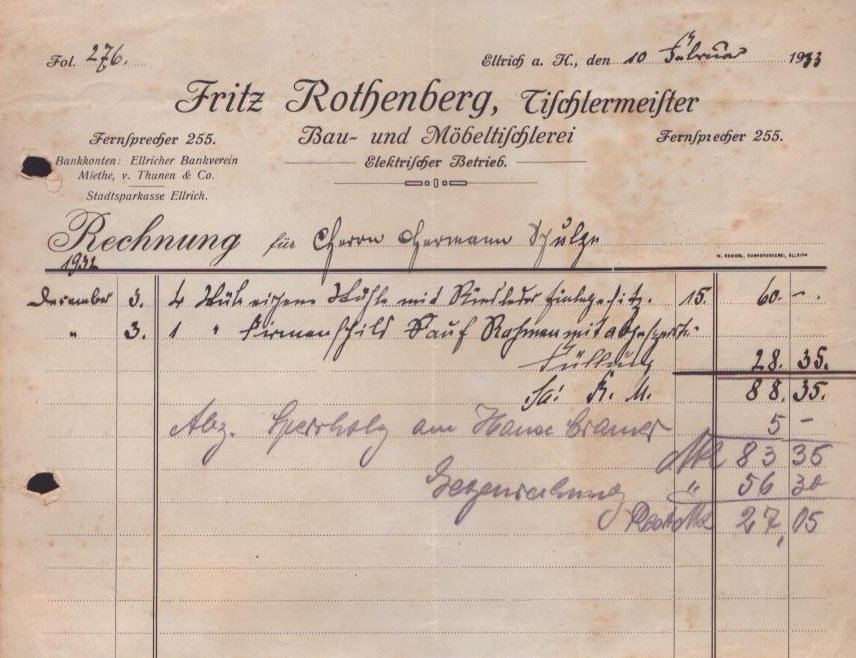 Fol. 276.
Ellrich a. H., den 10 Februar 1933
Fritz Rothenberg, Tischlermeister
Fernsprecher 255.
Bau- und Möbeltischlerei
Fernsprecher 255.
Bankkonten: Ellricher Bankverein
Miethe, v. Thanen & Co.
Stadtsparkasse Ellrich.
Elektrischer Betrieb.
Rechnung für Herrn Hermann Schulze
1932
December 3. 4 Stühle mit Rindleder Einlegesitz. 15. 60. -.
" 3. 1 " Firmenschild auf Rahmen mit abgesperrter
Füllung 28. 35.
Sa: R. M. 88. 35.
Abz. Sperrholz am Hause Cramer 5 -
Mk 83 35
Gegenrechnung " 56 30
Rest Mk 27,05